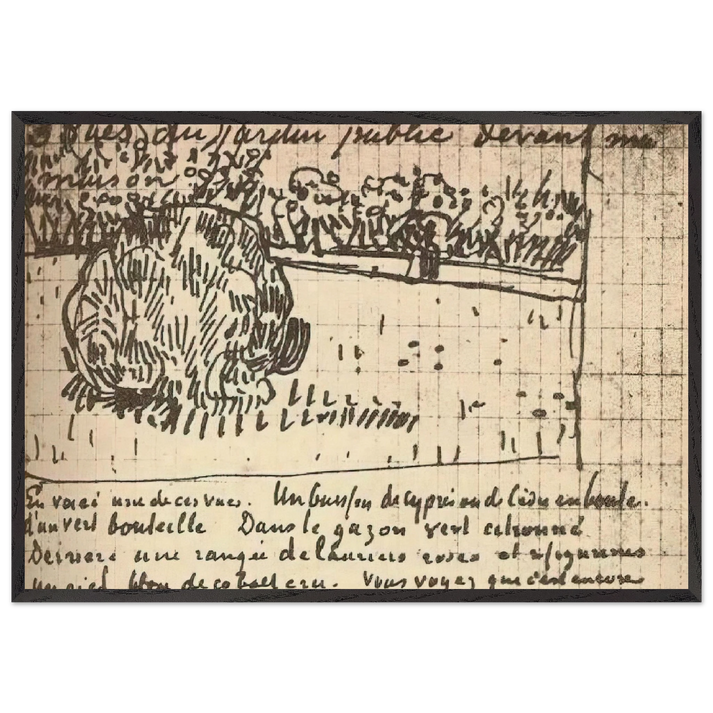 vues du jardin public devant ma
maison
En voici une de ces vues. Un buisson de cyprès ou de cèdre en boule.
d'un vert bouteille Dans le gazon vert citronné
Derrière une rangée de lauriers roses et
un ciel bleu de cobalt cru. Vous voyez que c'est encore